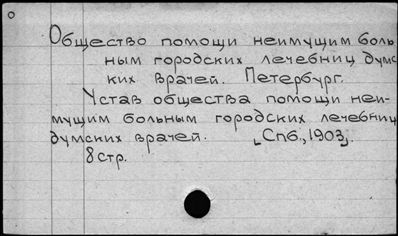 Общество помощи неимущим боль
ным городских лечебниц думс
ких врачей. Петербург.
Устав общества помощи неи-
мущим больным городских лечебниц
думских врачей. [Спб., 1903].
8 стр.